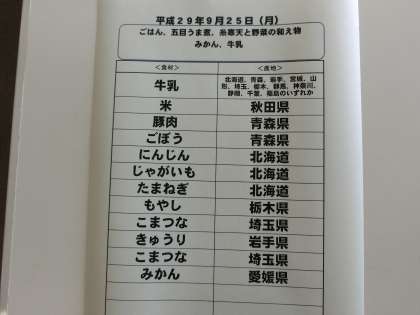 平成29年9月25日（月）
ごはん、五目うま煮、糸寒天と野菜の和え物
みかん、牛乳
＜食材＞ ＜産地＞
牛乳 北海道、青森、岩手、宮城、山
形、埼玉、栃木、群馬、神奈川、
静岡、千葉、福島のいずれか
米 秋田県
豚肉 青森県
ごぼう 青森県
にんじん 北海道
じゃがいも 北海道
たまねぎ 北海道
もやし 栃木県
こまつな 埼玉県
きゅうり 岩手県
こまつな 埼玉県
みかん 愛媛県